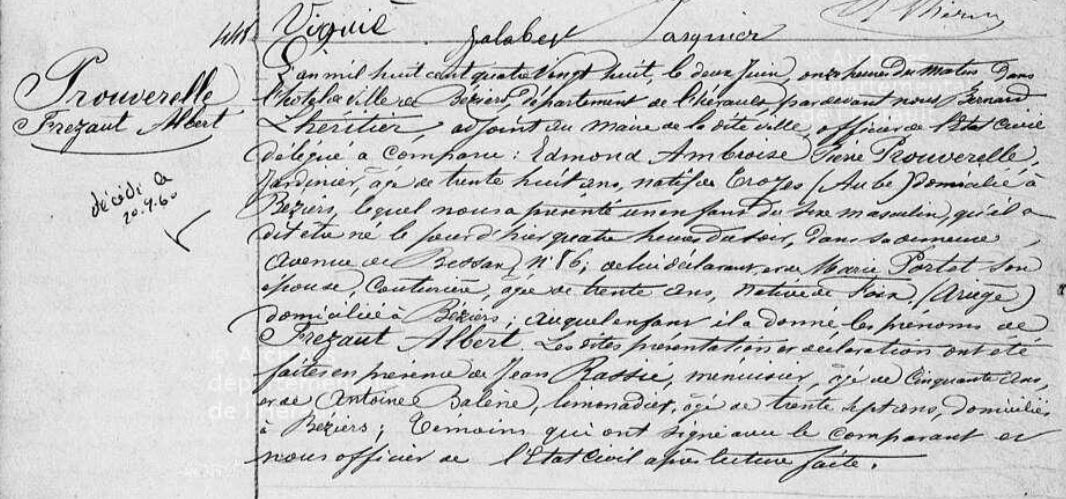 448 Viguié Jalabert Pasquier
Prouverelle
Frezaut Albert
décédé à
20.9.60
L'an mil huit cent quatre vingt huit, le deux Juin, onze heures du matin dans
l'hotel de Ville de Béziers, département de l'hérault, pardevant nous, Bernard
Lhéritier, adjoint au maire de la dite ville, officier de l'Etat Civil
délégué a Comparu : Edmond Ambroise Pierre Prouverelle,
Jardinier, âgé de trente huit ans, natif de Troyes (Aube) domicilié à
Béziers, lequel nous a présenté un enfant du sexe masculin, qu'il a
dit être né le jour d'hier quatre heures du soir, dans sa demeure
avenue de Bessan, n° 86 ; de lui déclarant, et de Marie Portet son
épouse, Couturière, âgée de trente ans, native de Foix, (Ariège)
domiciliée à Béziers ; auquel enfant il a donné les prénoms de
Frezaut Albert. Les dites présentation et déclaration ont été
faites en présence de Jean Rassié, menuisier, âgé de Cinquante ans,
et de Antoine Balene, limonadier, âgé de trente sept ans, domiciliés
à Béziers ; Temoins qui ont signé avec le Comparant et
nous officier de l'Etat Civil après lecture faite.
© Archives
départementales
de l'Hérault